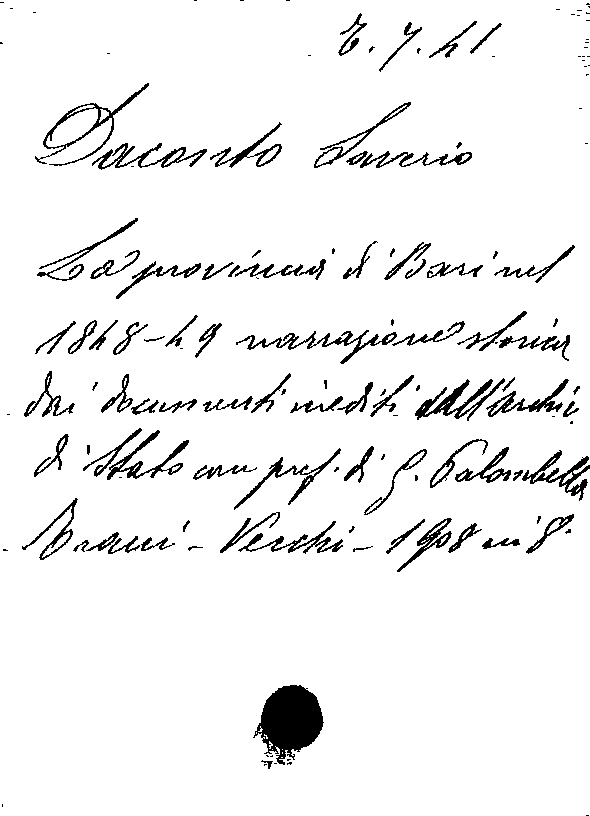 7.41
Daconto Saverio
La provincia di Bari nel
1848-49 narrazione storica
dai documenti inediti dall'Archi.
di Stato con pref. di G. Palombella
Trani - Vecchi - 1908 in 8°